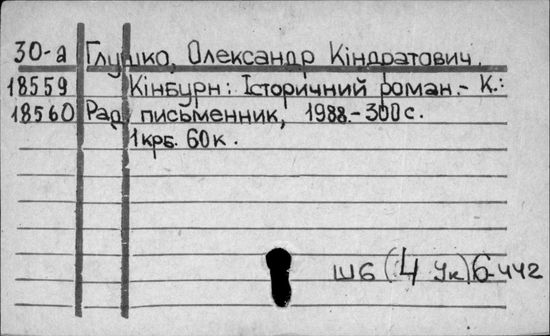 30-а Глушко, Олександр Кіндратович.
18559 Кінбурн: Історичний роман.- К.:
18560 Рад. письменник, 1988.-300с.
1крб. 60к.
Ш6(4Ук)6-442